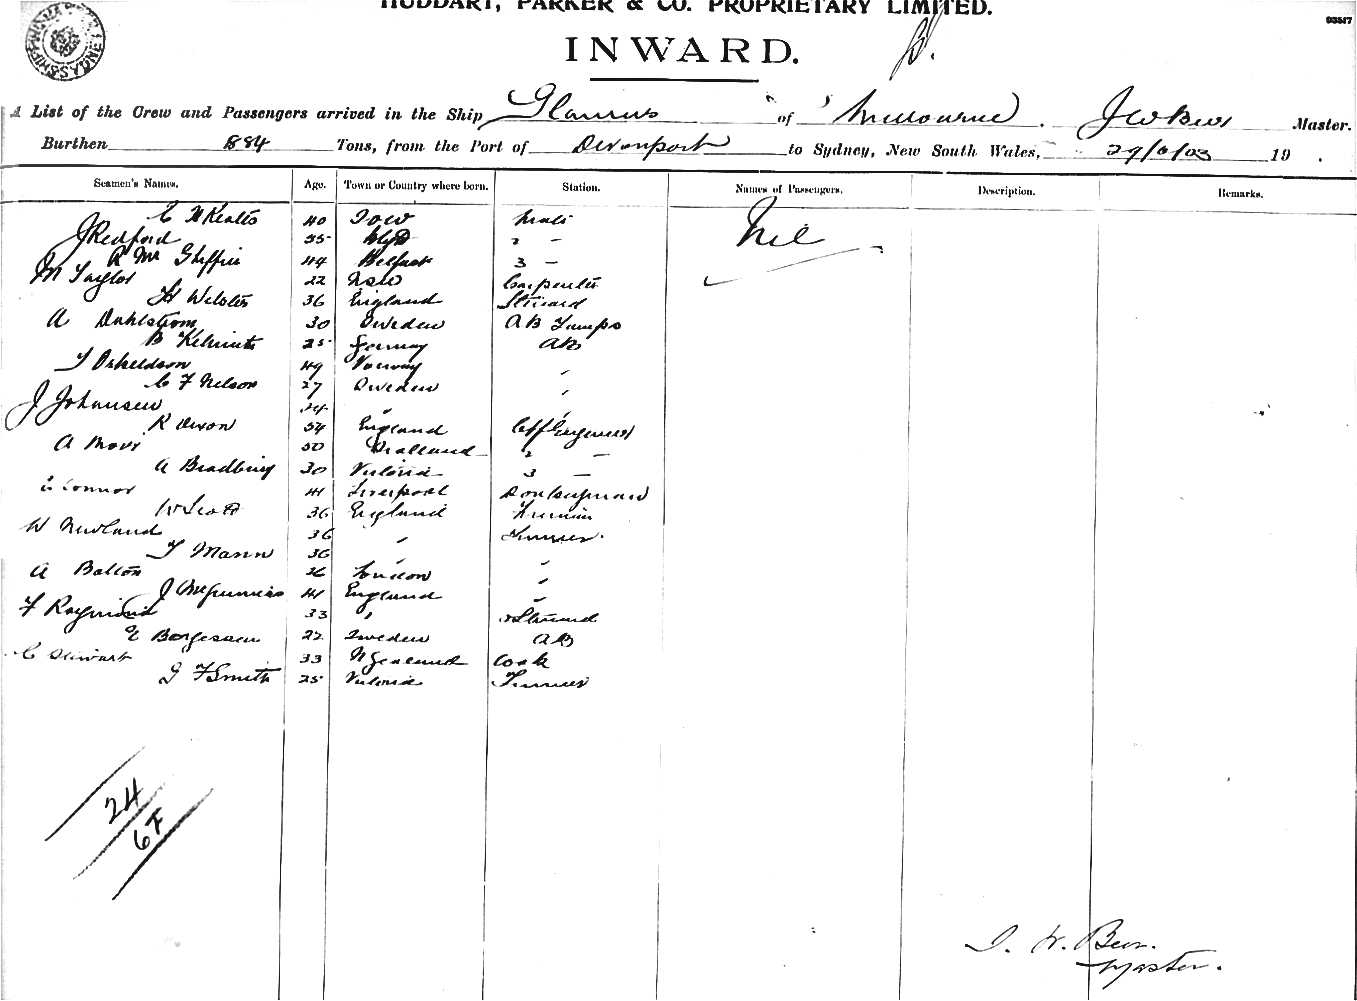 HUDDART, PARKER & CO. PROPRIETARY LIMITED.
03517
INWARD.
A List of the Crew and Passengers arrived in the Ship Glaucus of Melbourne J W Bew Master.
Burthen 884 Tons, from the Port of Devonport to Sydney, New South Wales, 29/6/03 19 .
Seamen's Names. Age. Town or Country where born. Station. Names of Passengers. Description. Remarks.
C H Keatts 40 Mate Nil
J Redford 35 2 -
R Mc Ghffie 44 Belfast 3 -
M Taylor 22 NSW Carpenter
H Webster 36 England Steward
A Dahlstrom 30 Sweden AB Lamps
B 25 Germany AB
T Oskeldson 49 Norway "
C F Nelson 27 Sweden "
J Johansen 24 " "
R Dixon 54 England Chf Engineer
A 50 2 -
A Bradbury 30 Victoria 3 -
Connor 41 Liverpool Donkeyman
W Scott 36 England Fireman
W Newland 36 " Trimmer.
T Mann 36 " "
A Balton 26 London "
J 41 England "
F Raymond 33 " Steward
E Borgessen 22 Sweden AB
C Stewart 33 N Zealand Cook
G F Smith 25 Victoria Trimmer
24
67
J. W. Bew.
Master.